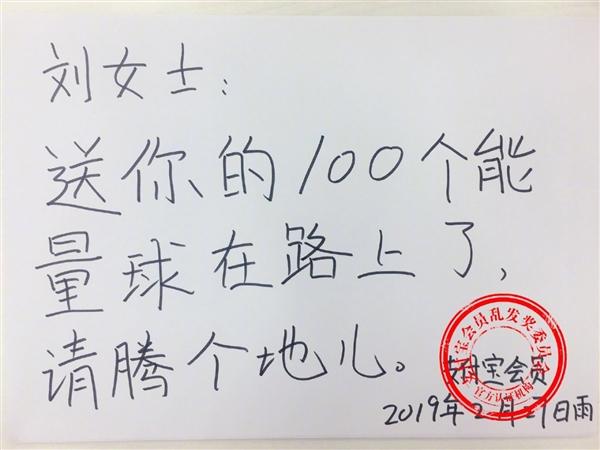 刘女士：
送你的100个能
量球在路上了，
请腾个地儿。
支付宝会员
2019年2月27日雨
支付宝会员乱发奖委员会
官方认证机构